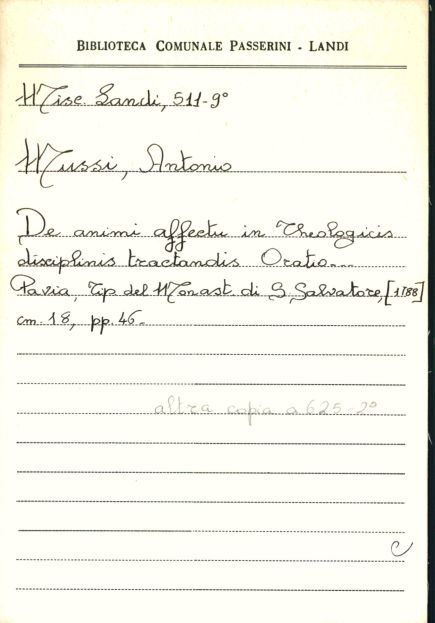 BIBLIOTECA COMUNALE PASSERINI - LANDI
Misc. Landi, 511-9°
Mussi, Antonio
De animi affectu in Theologicis
disciplinis tractandis Oratio...
Pavia, Tip. del Monast. di S. Salvatore, [1788]
cm. 18, pp. 46.
altra copia a 625-2°
C